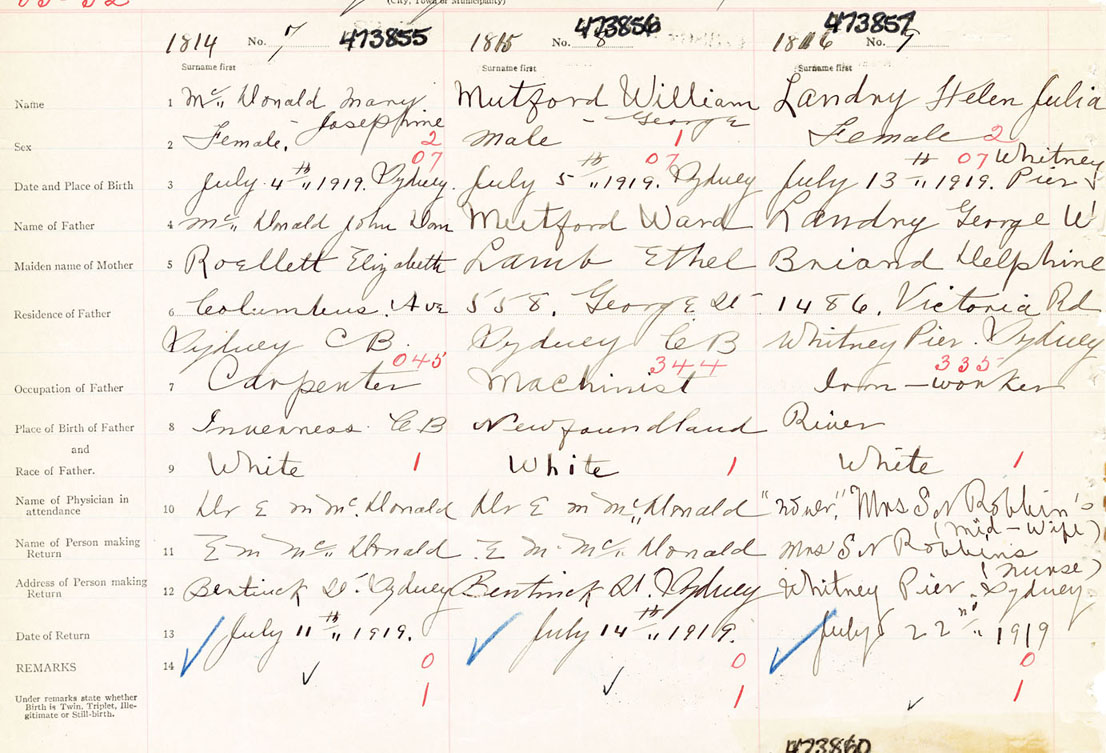 03-52
(City, Town or Municipality)
1814 No. 7 473855 1815 No. 8 473856 1816 No. 9 473857
Surname first Surname first Surname first
Name 1 Mc Donald Mary Josephine Mutford William George Landry Helen Julia
Sex 2 Female. 2 Male 1 Female 2
07 07 07
Date and Place of Birth 3 July 4th 1919. Sydney. July 5th 1919. Sydney July 13th 1919. Whitney Pier
Name of Father 4 Mc Donald John Dan Mutford Ward Landry George W
Maiden name of Mother 5 Roellett Elizabeth Lamb Ethel Briand Delphine
Residence of Father 6 Columbus. Ave 558. George St 1486. Victoria Rd
Sydney C B. Sydney C B Whitney Pier. Sydney
045 344 335
Occupation of Father 7 Carpenter Machinist Iron-worker
Place of Birth of Father 8 Inverness C B Newfoundland River
and
Race of Father. 9 White 1 White 1 White 1
Name of Physician in
attendance 10 Dr E M Mc Donald Dr E M Mc Donald Mrs S N Robbin's
(Mid-Wife)
Name of Person making
Return 11 E M Mc Donald E M. Mc Donald Mrs S N Robbins
(Nurse)
Address of Person making
Return 12 Bentinck St. Sydney Bentinck St. Sydney Whitney Pier. Sydney
Date of Return 13 July 11th 1919. July 14th 1919. July 22nd 1919
REMARKS 14 0 0 0
Under remarks state whether
Birth is Twin, Triplet, Ille-
gitimate or Still-birth. 1 1 1
473860